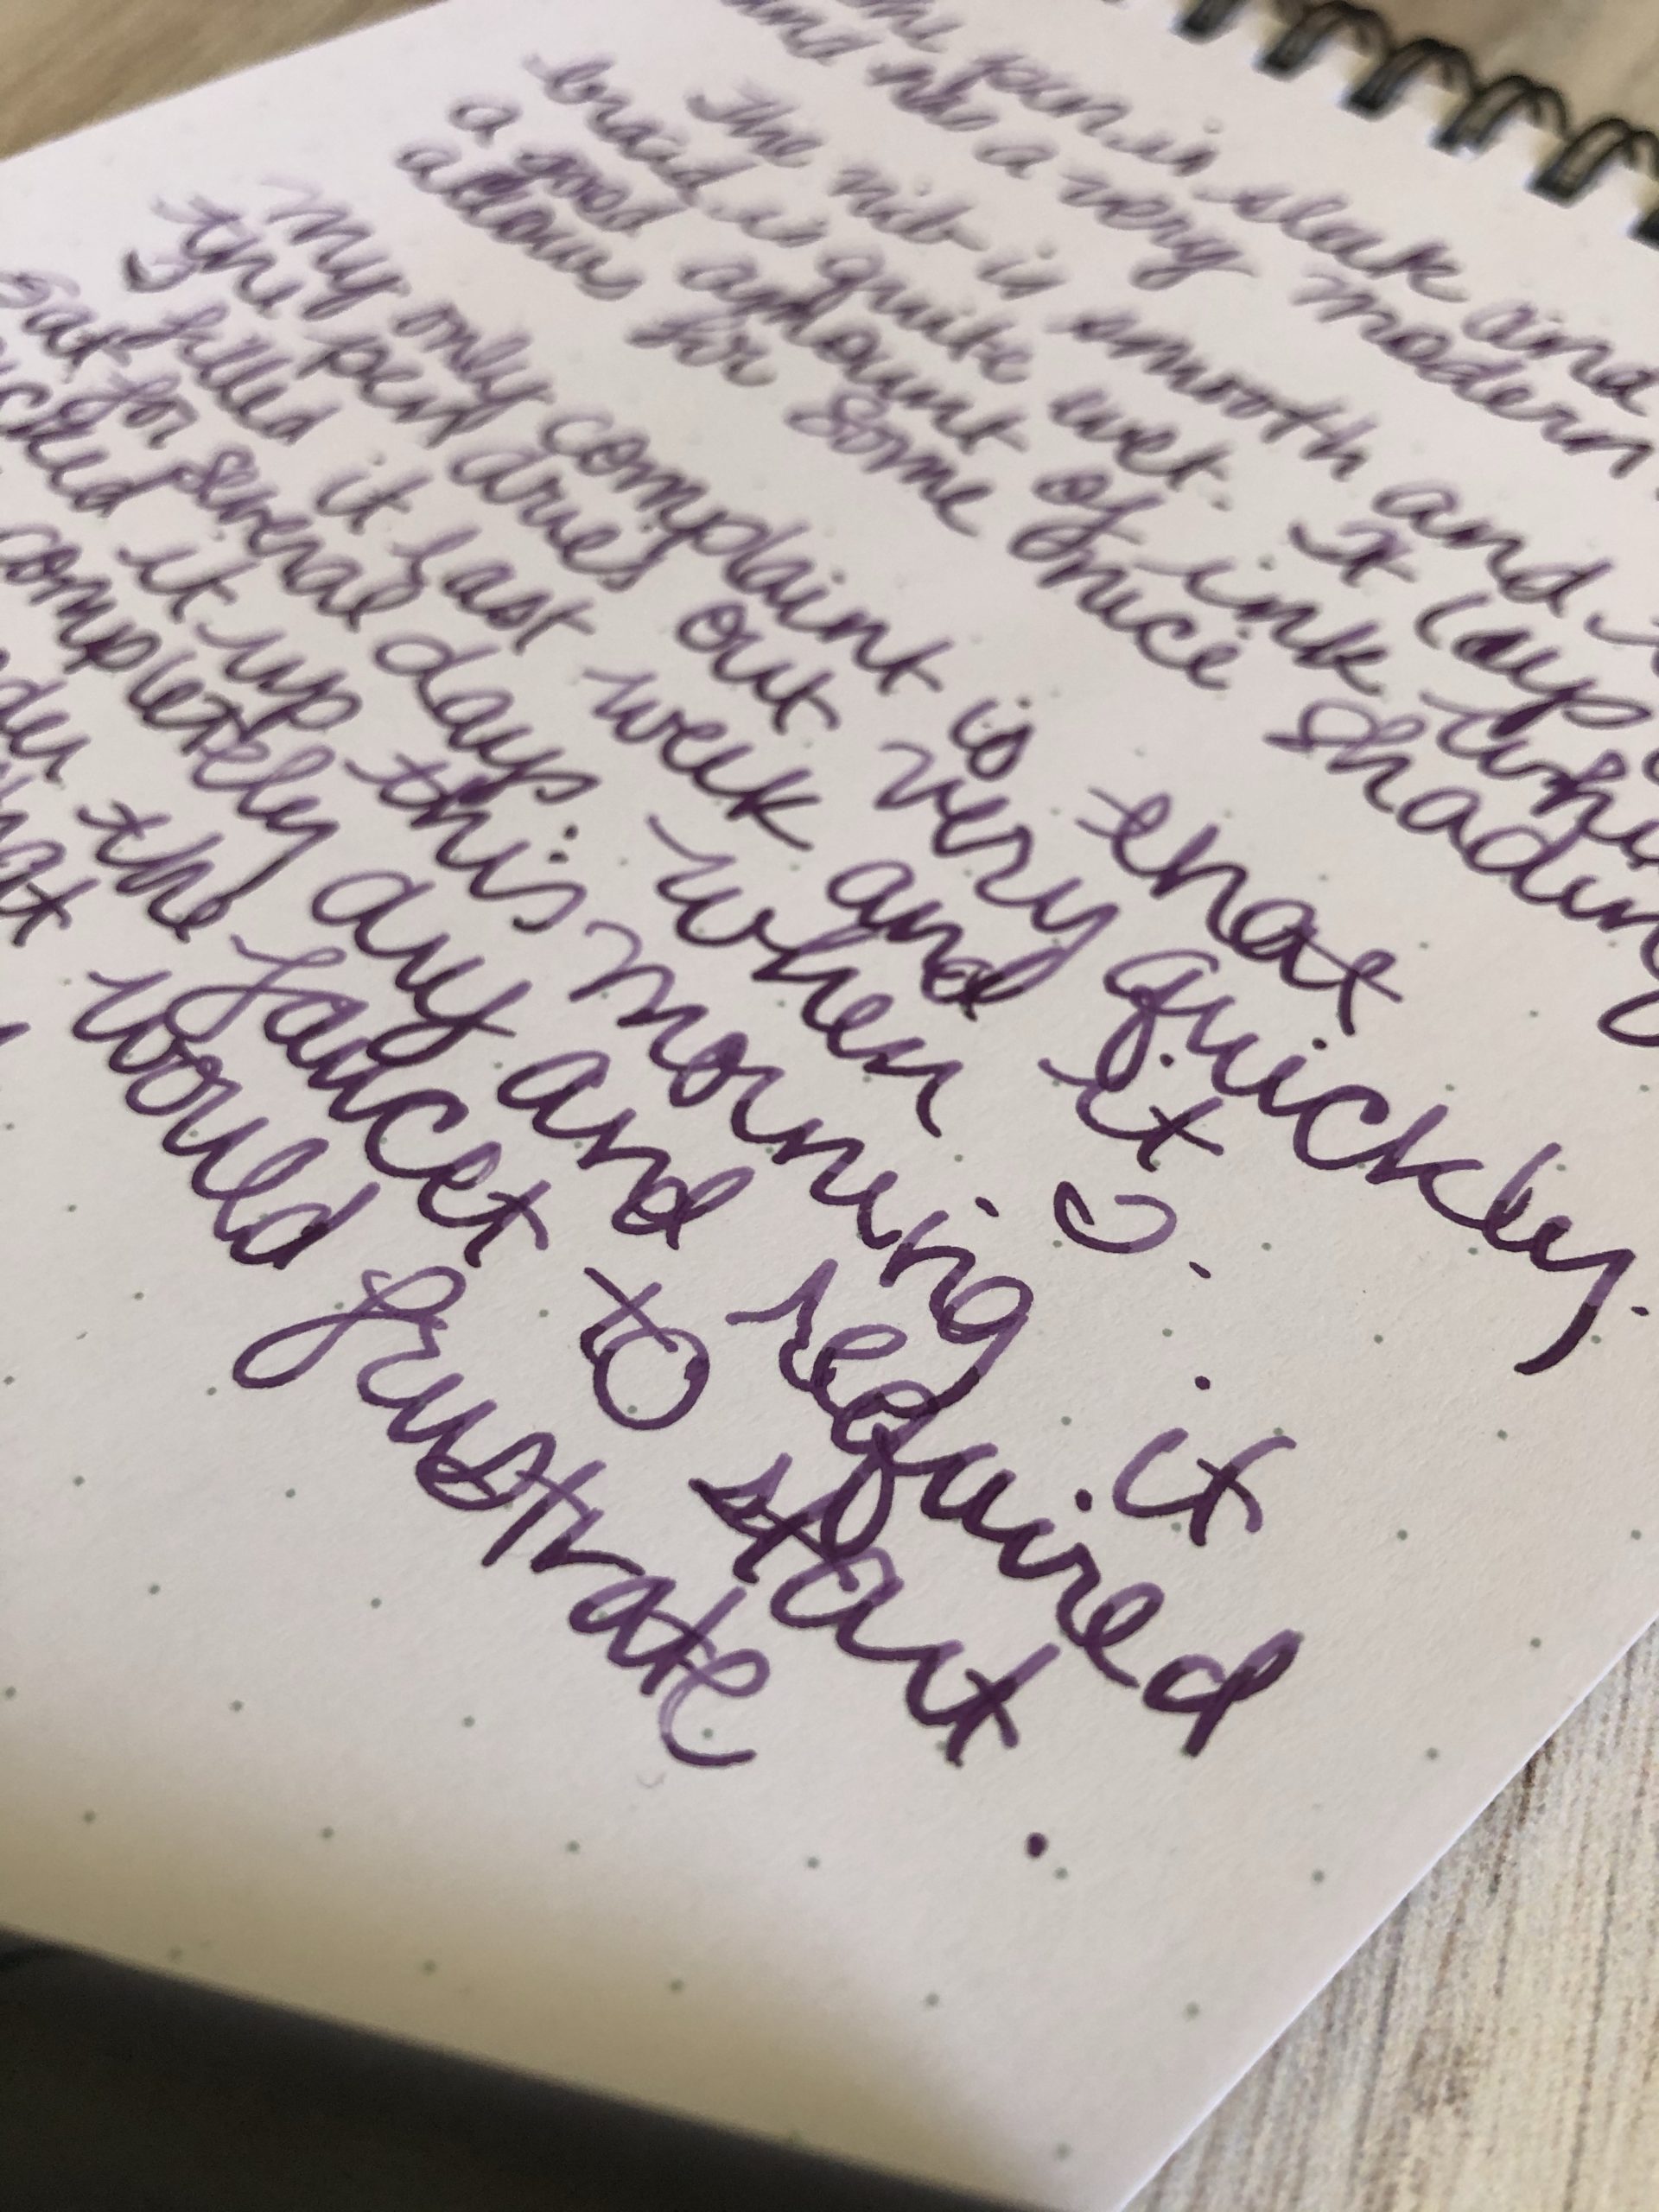 pen is sleek and
and has a very modern
The nib is smooth and
broad is quite wet. It lays
a good amount of ink
allows for some nice shading
My only complaint is that
the pen dries out very quickly.
I filled it last week and it
sat for several days. When I
it up this morning it
completely dry and required
the faucet to start.
would frustrate